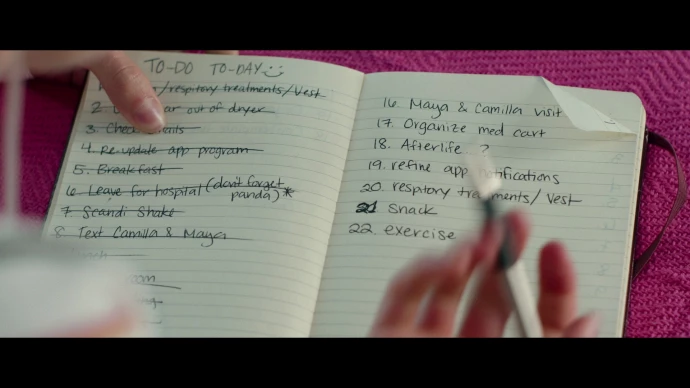 TO-DO TO-DAY
/respitory treatments/Vest
2 out of dryer
3.
4. Re-update app program
5. Breakfast
6. Leave for hospital (don't forget panda)*
7. Scandi Shake
8. Text Camilla & Maya
16. Maya & Camilla visit
17. Organize med cart
18. Afterlife ?
19. refine app notifications
20. respitory treatments/Vest
21 Snack
22. exercise